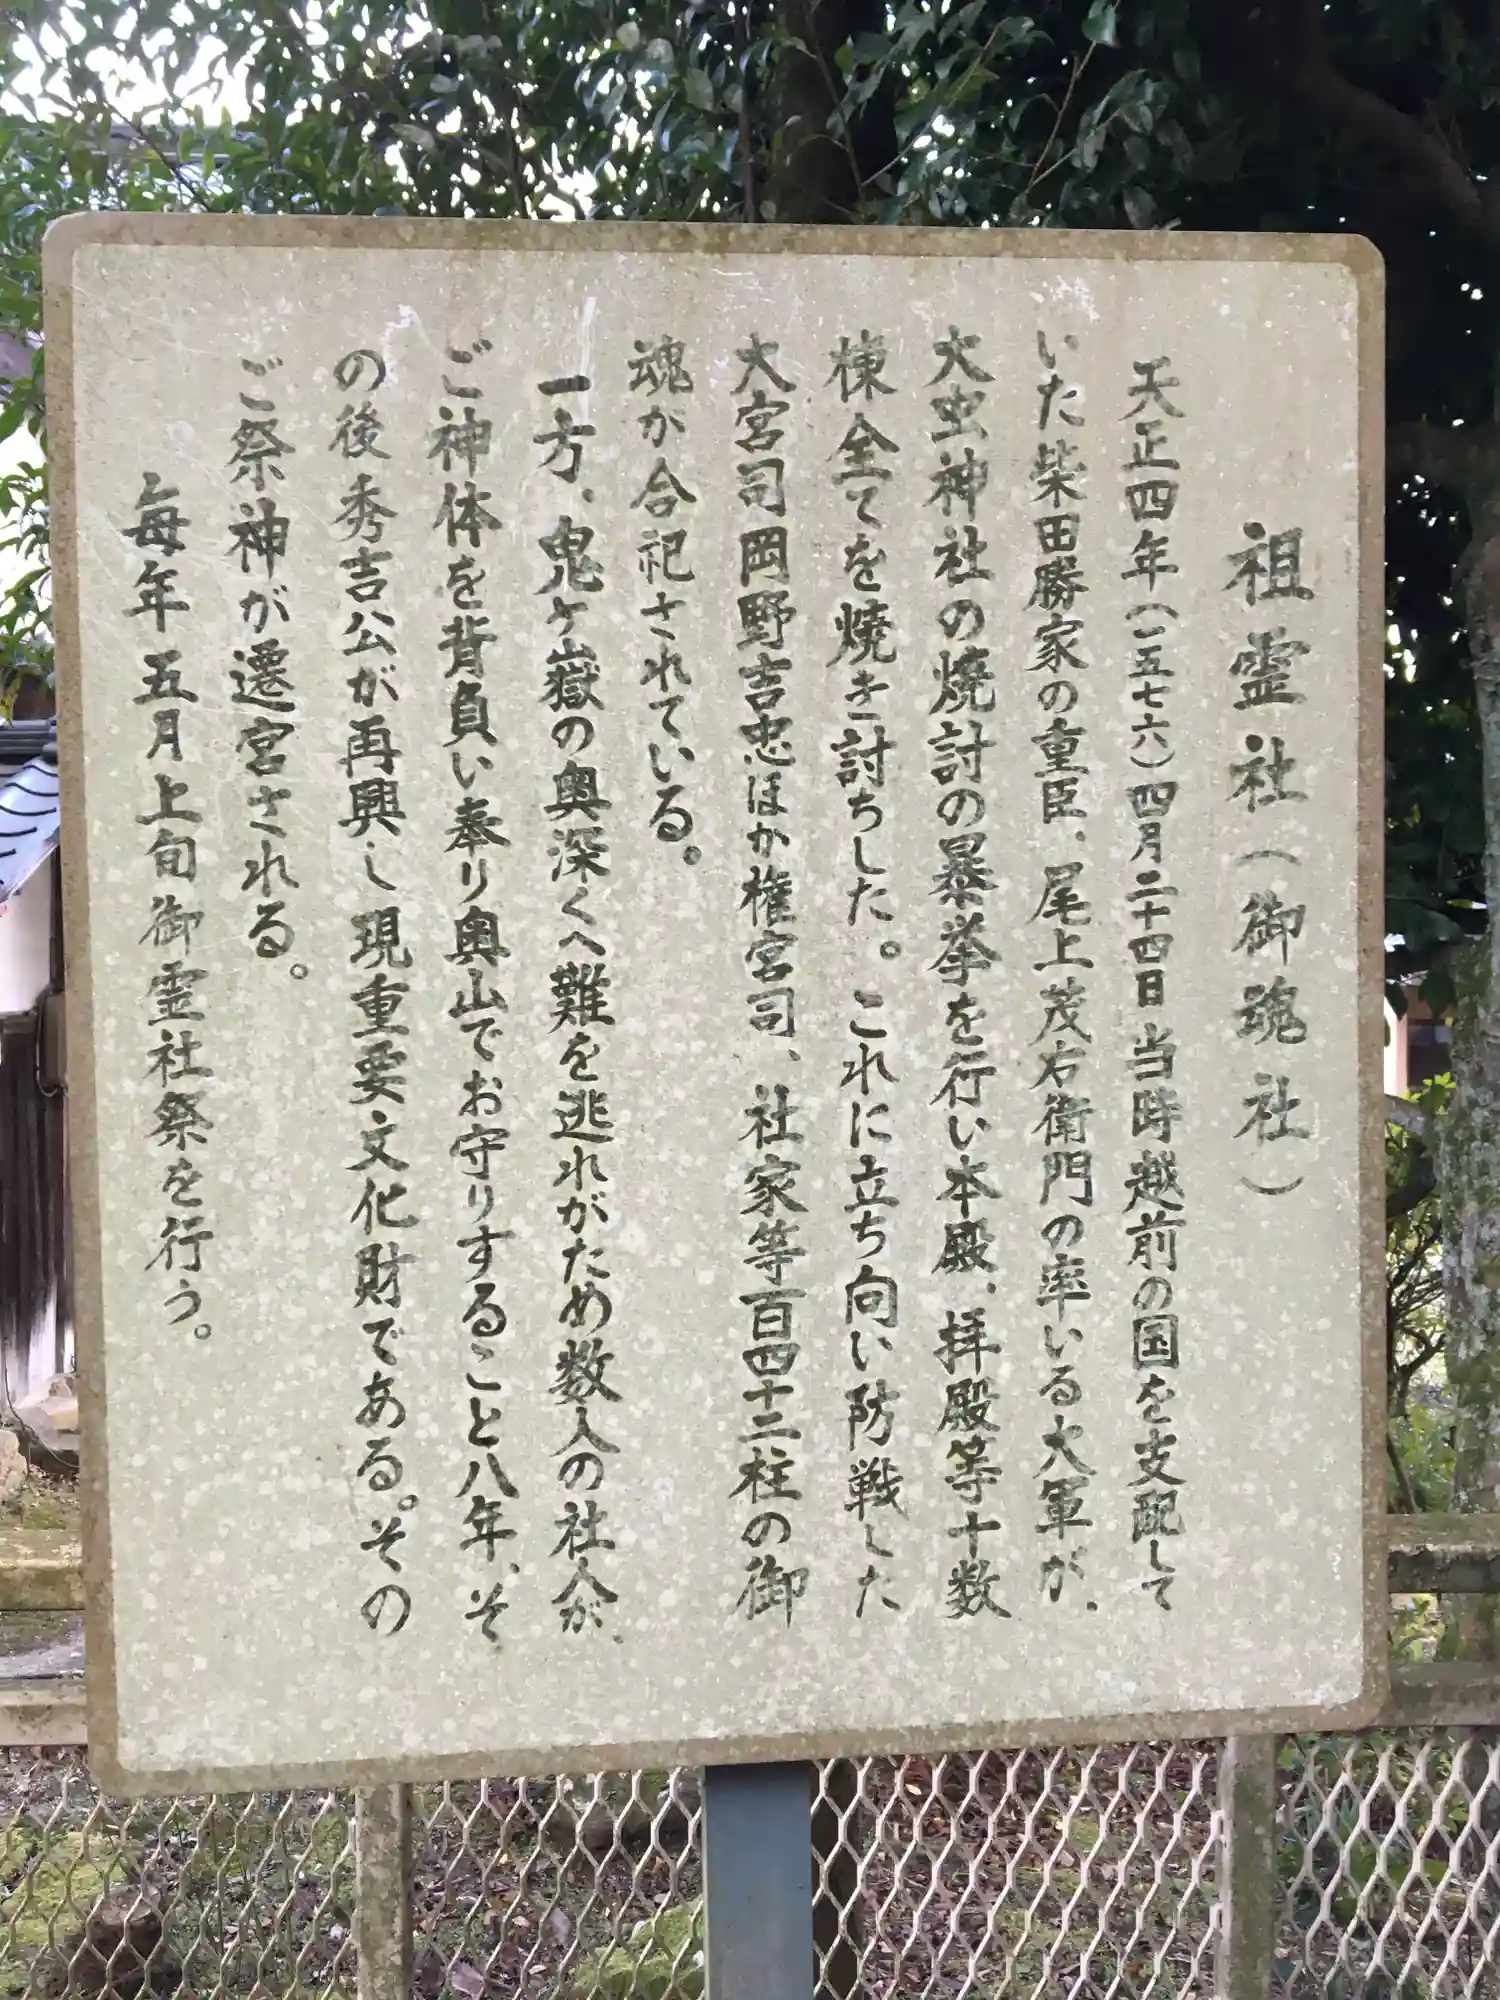 祖霊社（御魂社）
天正四年（一五七六）四月二十四日当時越前の国を支配して
いた柴田勝家の重臣、尾上茂右衛門の率いる大軍が、
大虫神社の焼討の暴挙を行い本殿、拝殿等十数
棟全てを焼き討ちした。これに立ち向い防戦した
大宮司岡野吉忠ほか権宮司、社家等百四十二柱の御
魂が合祀されている。
一方、鬼ヶ嶽の奥深くへ難を逃れがため数人の社人が、
ご神体を背負い奉り奥山でお守りすること八年、そ
の後秀吉公が再興し現重要文化財である。その
ご祭神が遷宮される。
毎年五月上旬御霊社祭を行う。